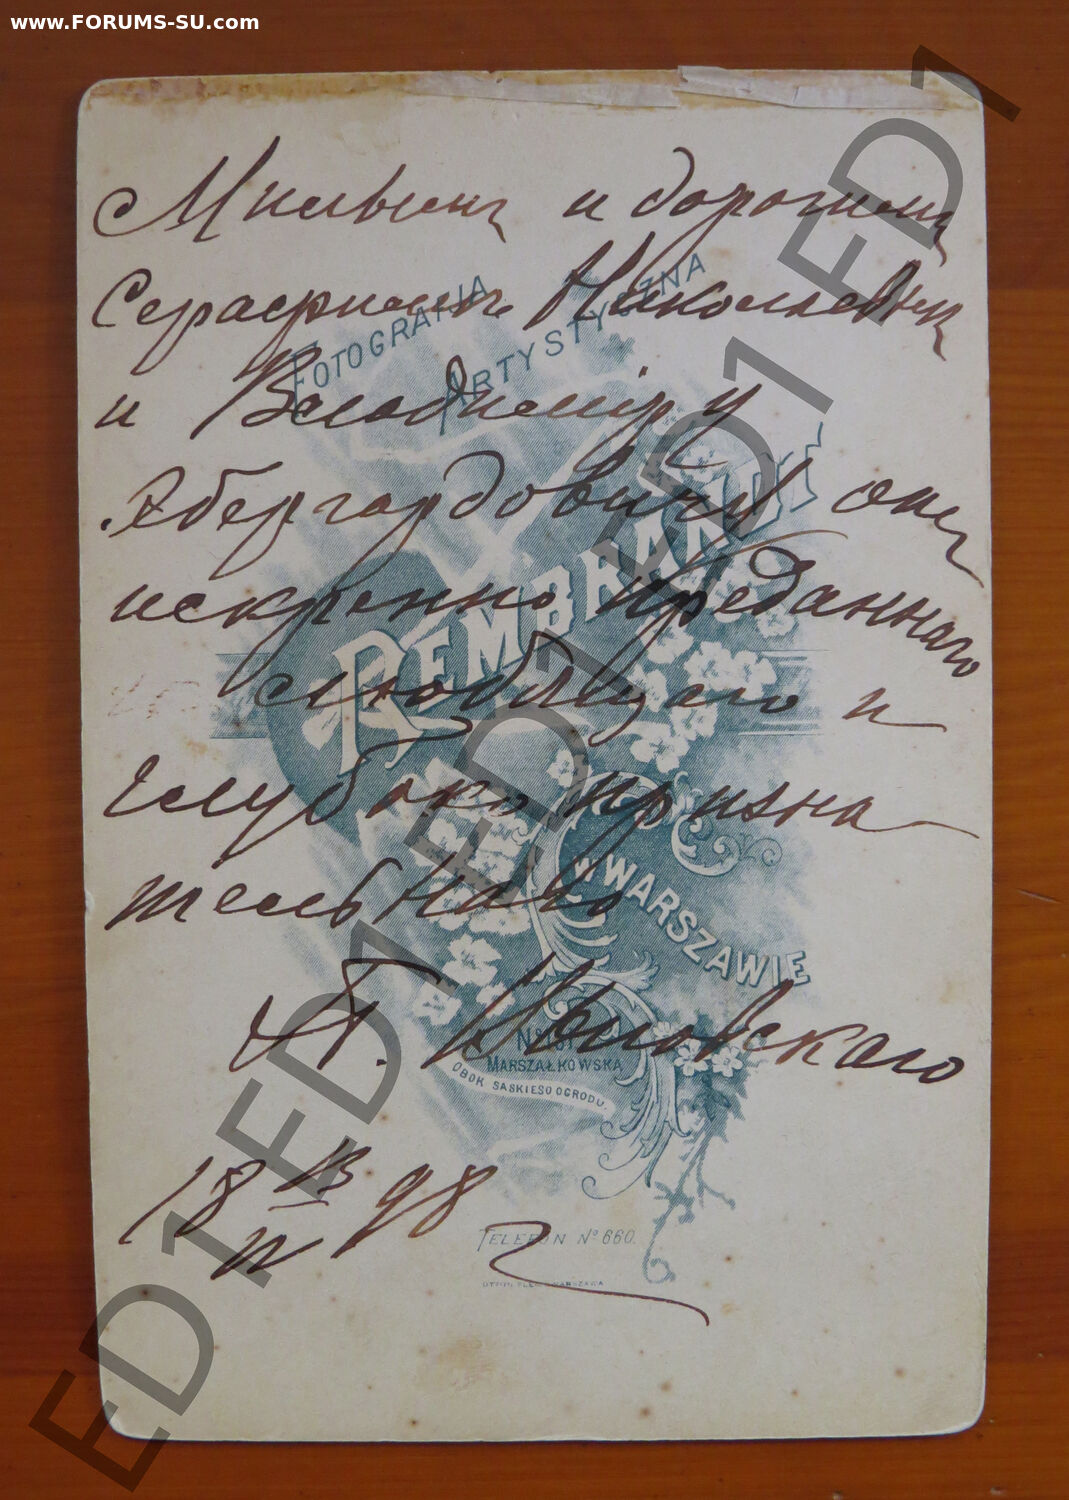 www.FORUMS-SU.com
Милымъ и дорогимъ
Серафимъ Николаевнъ
и Владимiру
Эбергардовичу отъ
искренно преданнаго
любящаго и
глубоко призна-
тельнаго
18 98 г
FOTOGRAFIA ARTYSTYCZNA
REMBRANDT
W WARSZAWIE
MARSZAŁKOWSKA
OBOK SASKIEGO OGRODU.
TELEFON № 660.
ED1 ED1 ED1 ED1 ED1 ED1